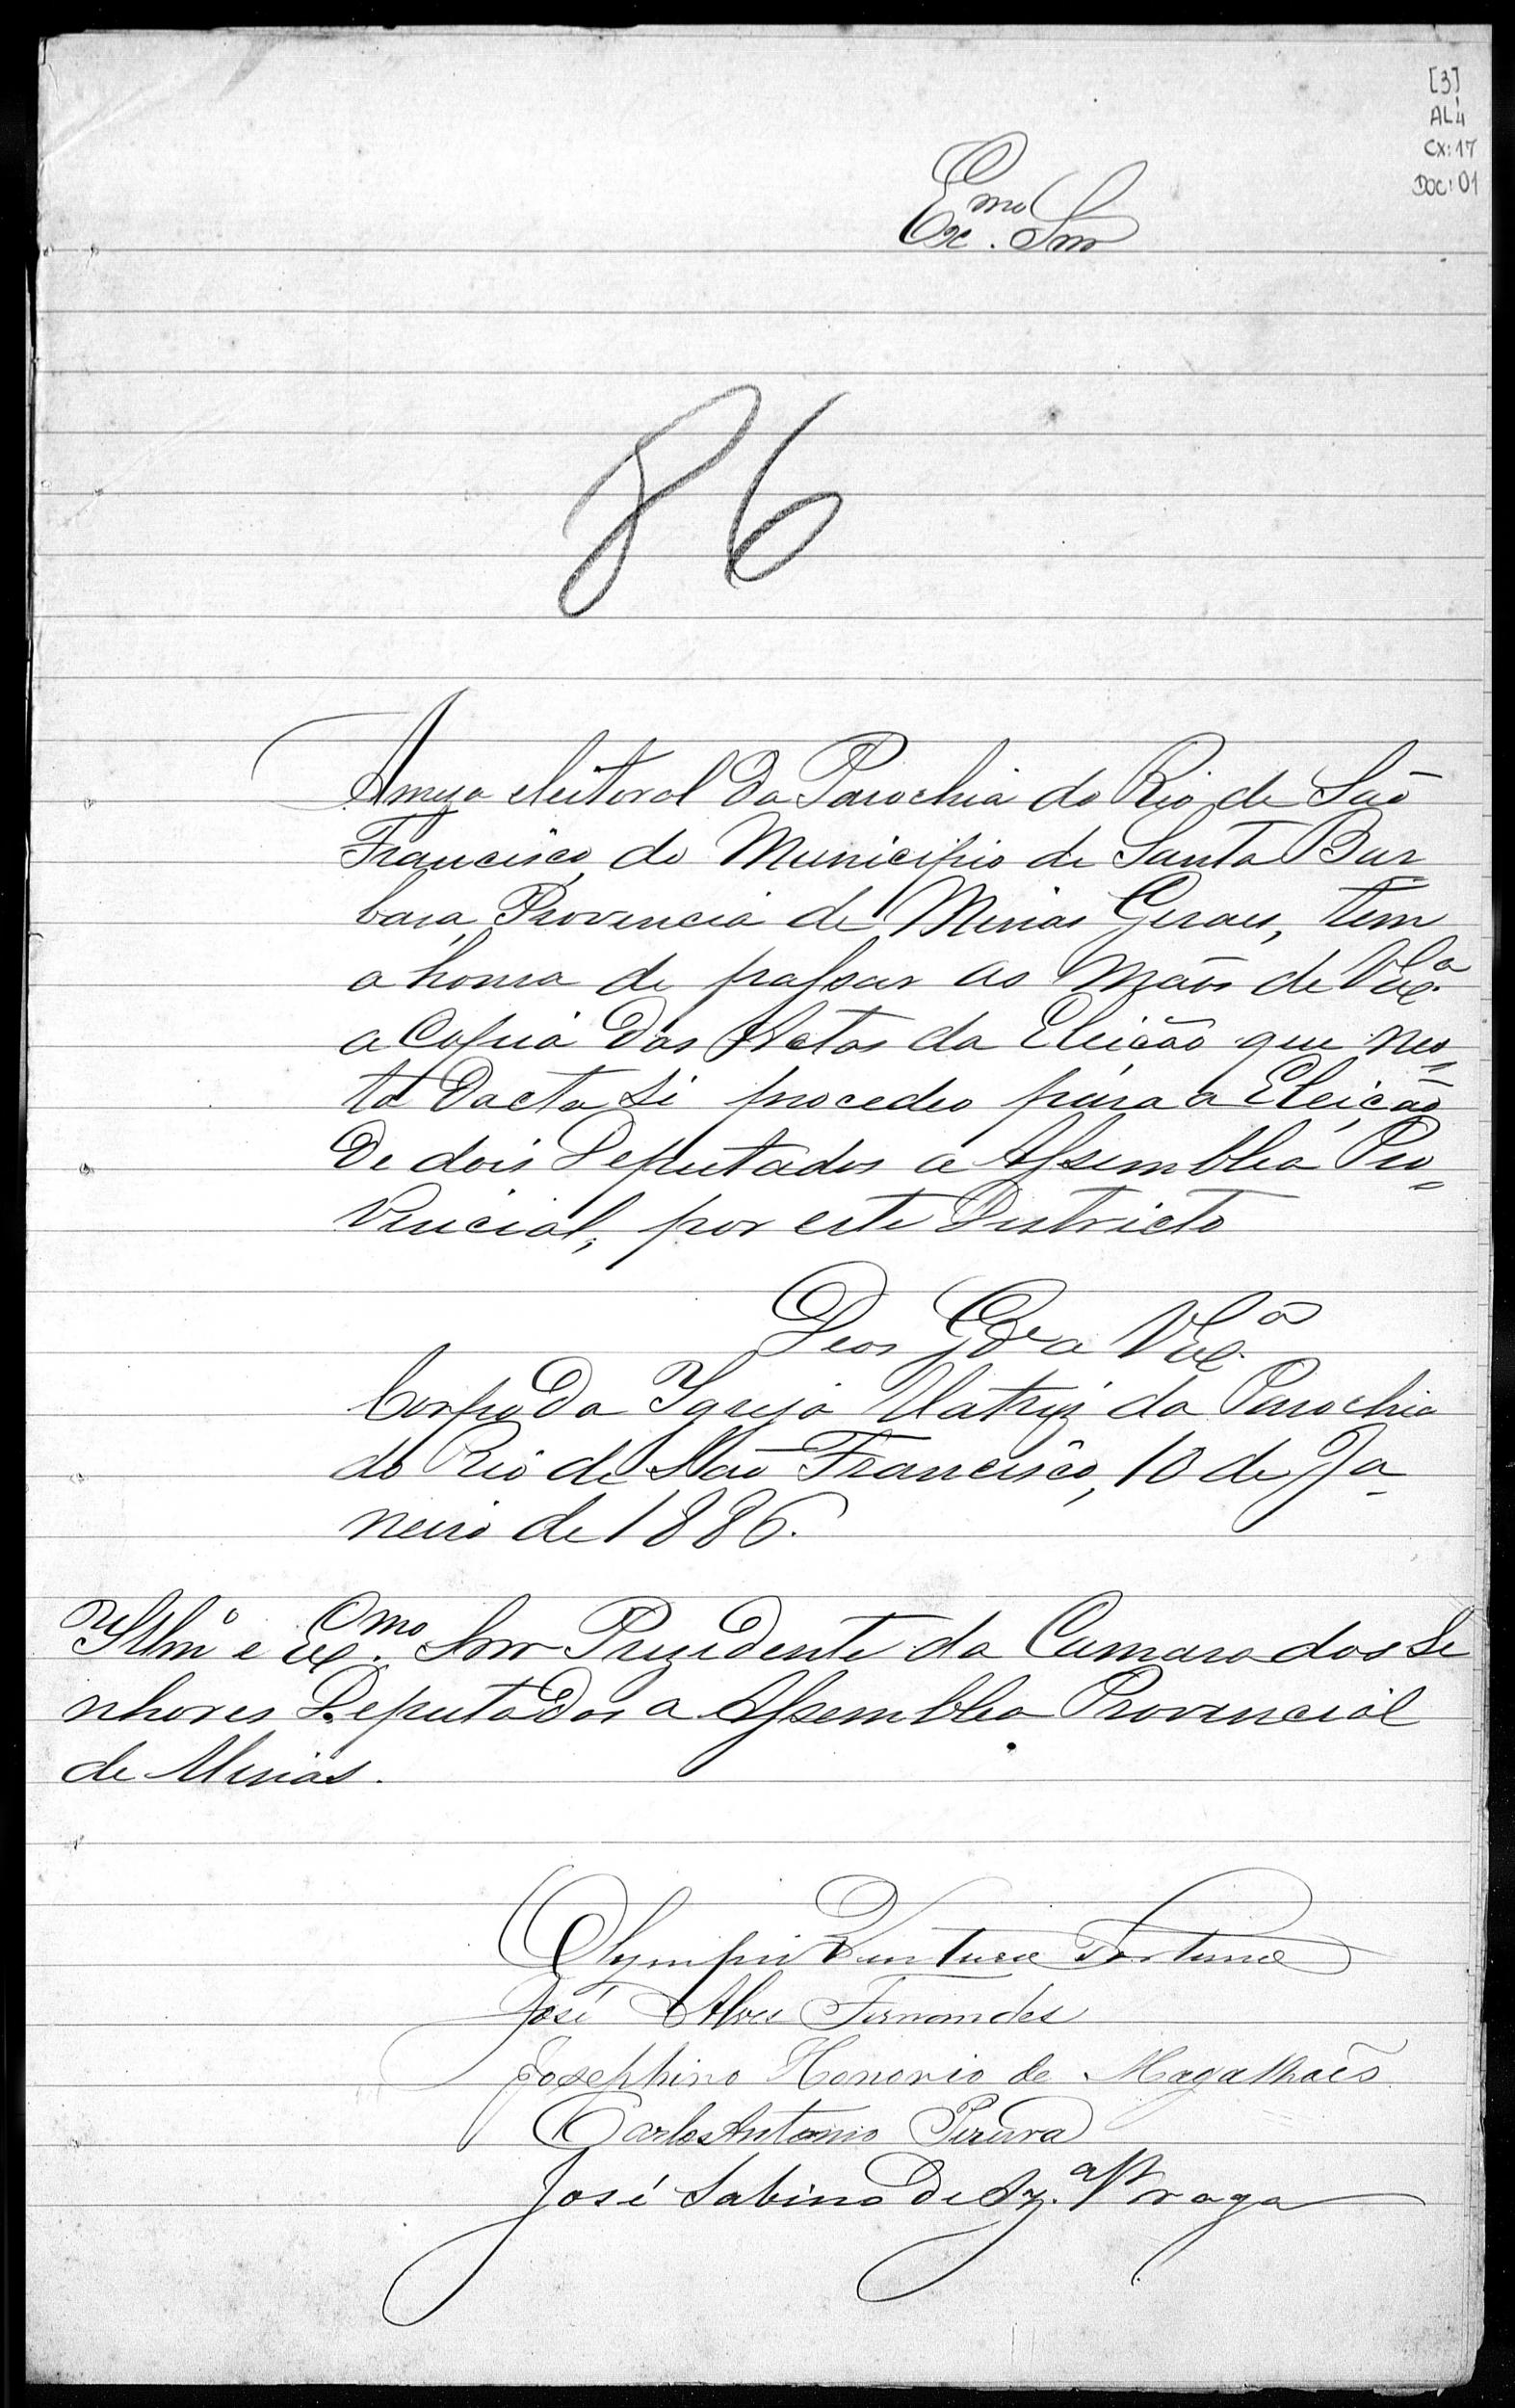 [3]
AL4
CX:17
DOC:01
Exmo. Snr
86
A meza eleitoral da Parochia do Rio de São
Francisco, do Municipio de Santa Bar
bara, Provencia de Minas Geraes, tem
a honra de passar as Mãos de VExa.
a Copia das Actas da Eleicão que nes=
ta Dacta si procedeo para a Eleição
De dois Deputados a Assemblea Pro=
vencial, por este Districto
Deos Gde a VExa.
Corpo da Igreja Matriz da Parochia
do Rio de São Francisco, 10 de Ja-
neiro de 1886.
Illmo e Exmo. Snr Prezidente da Camara dos Se
nhores Deputados a Assemblea Provencial
de Minas.
Olympio Ventura Fortuna
José Alves Fernandes
Josephino Honorio de Magalhaẽs
Carlos Antonio Pereira
José Sabino de Braga